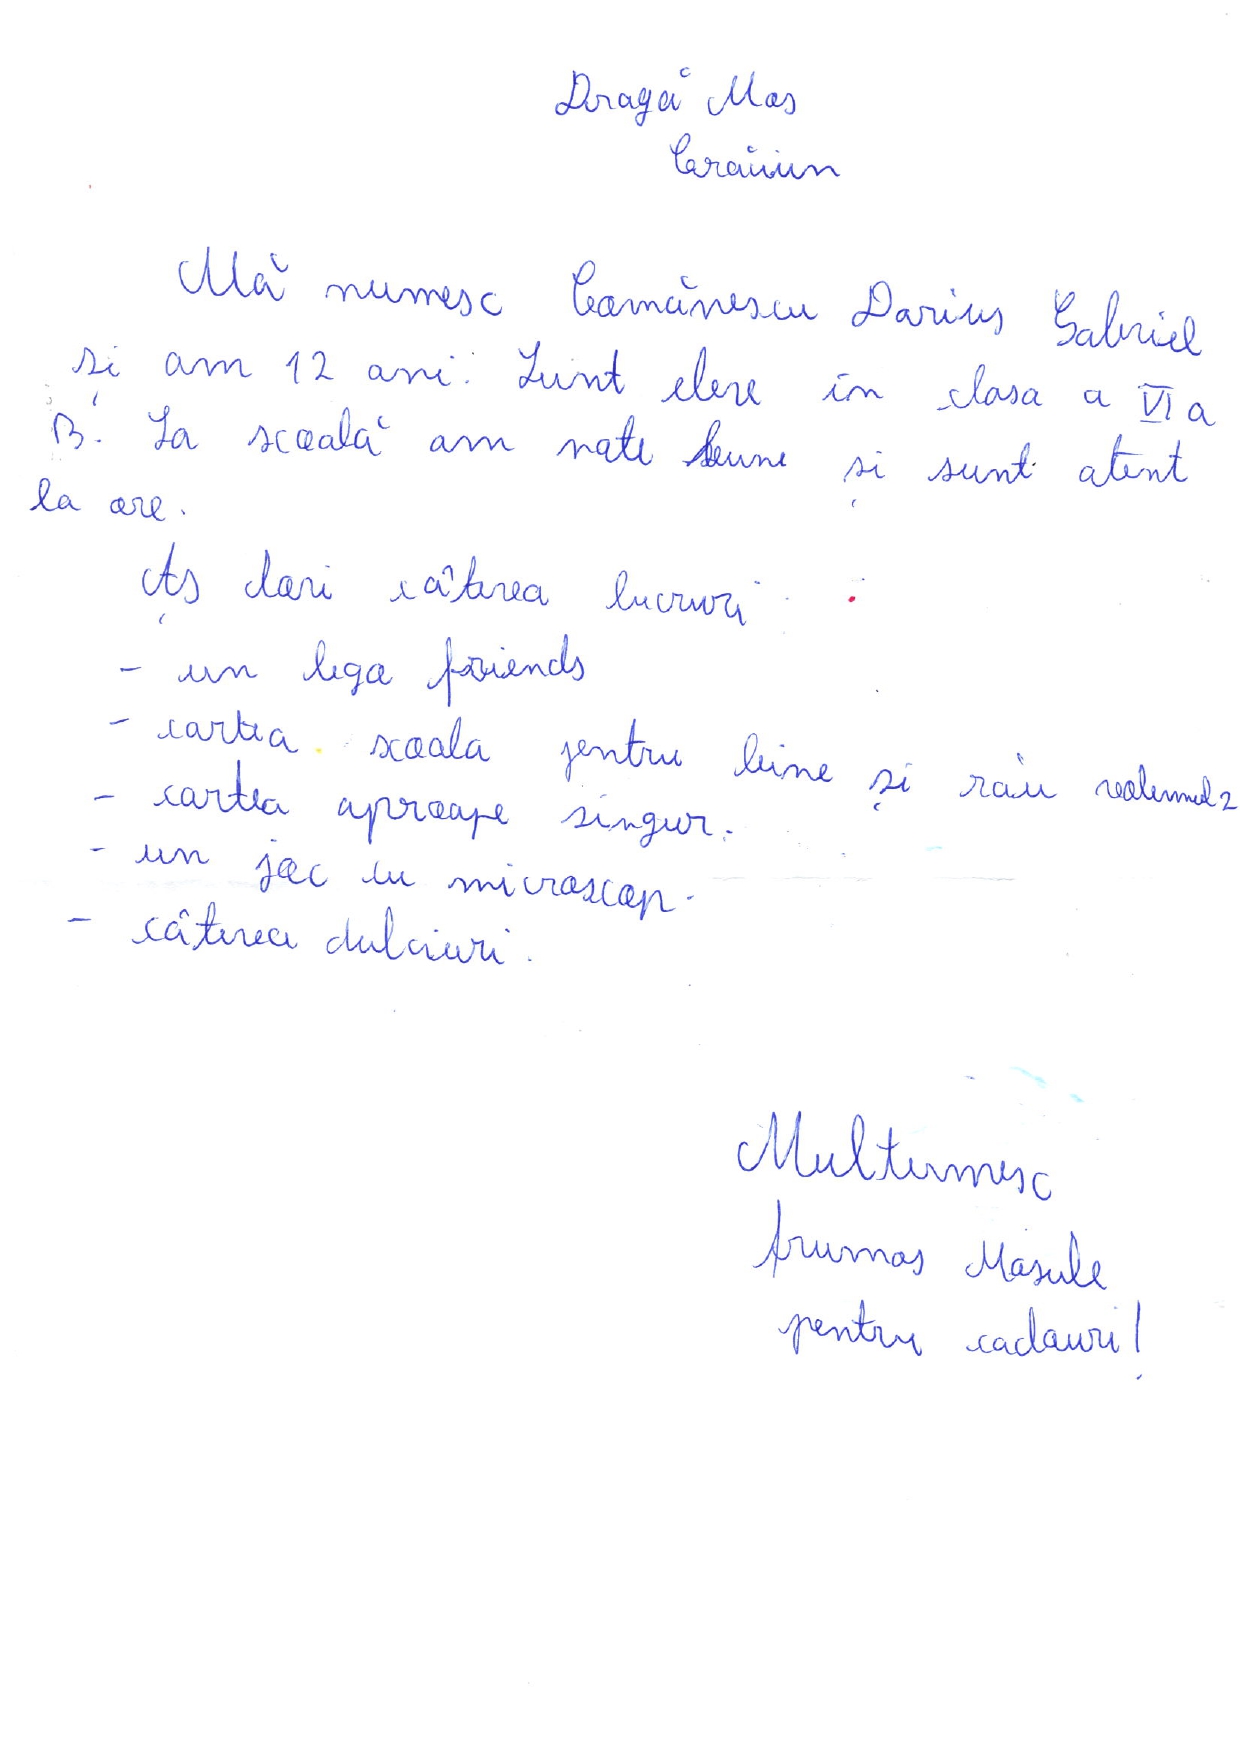 Dragă Mos
Crăiiun
Mă numesc Comănescu Darius Gabriel
și am 12 ani. Sunt eleve în clasa a VI a
B. La scoală am note bune și sunt atent
la ore.
Aș dori câteva lucruri
- un lego friends
- cartea scoala pentru bine și răiu volumul 2
- cartea aproape singur.
- un joc cu microscop.
- câteva dulciuri.
Multumesc
frumos Mosule
pentru cadouri!